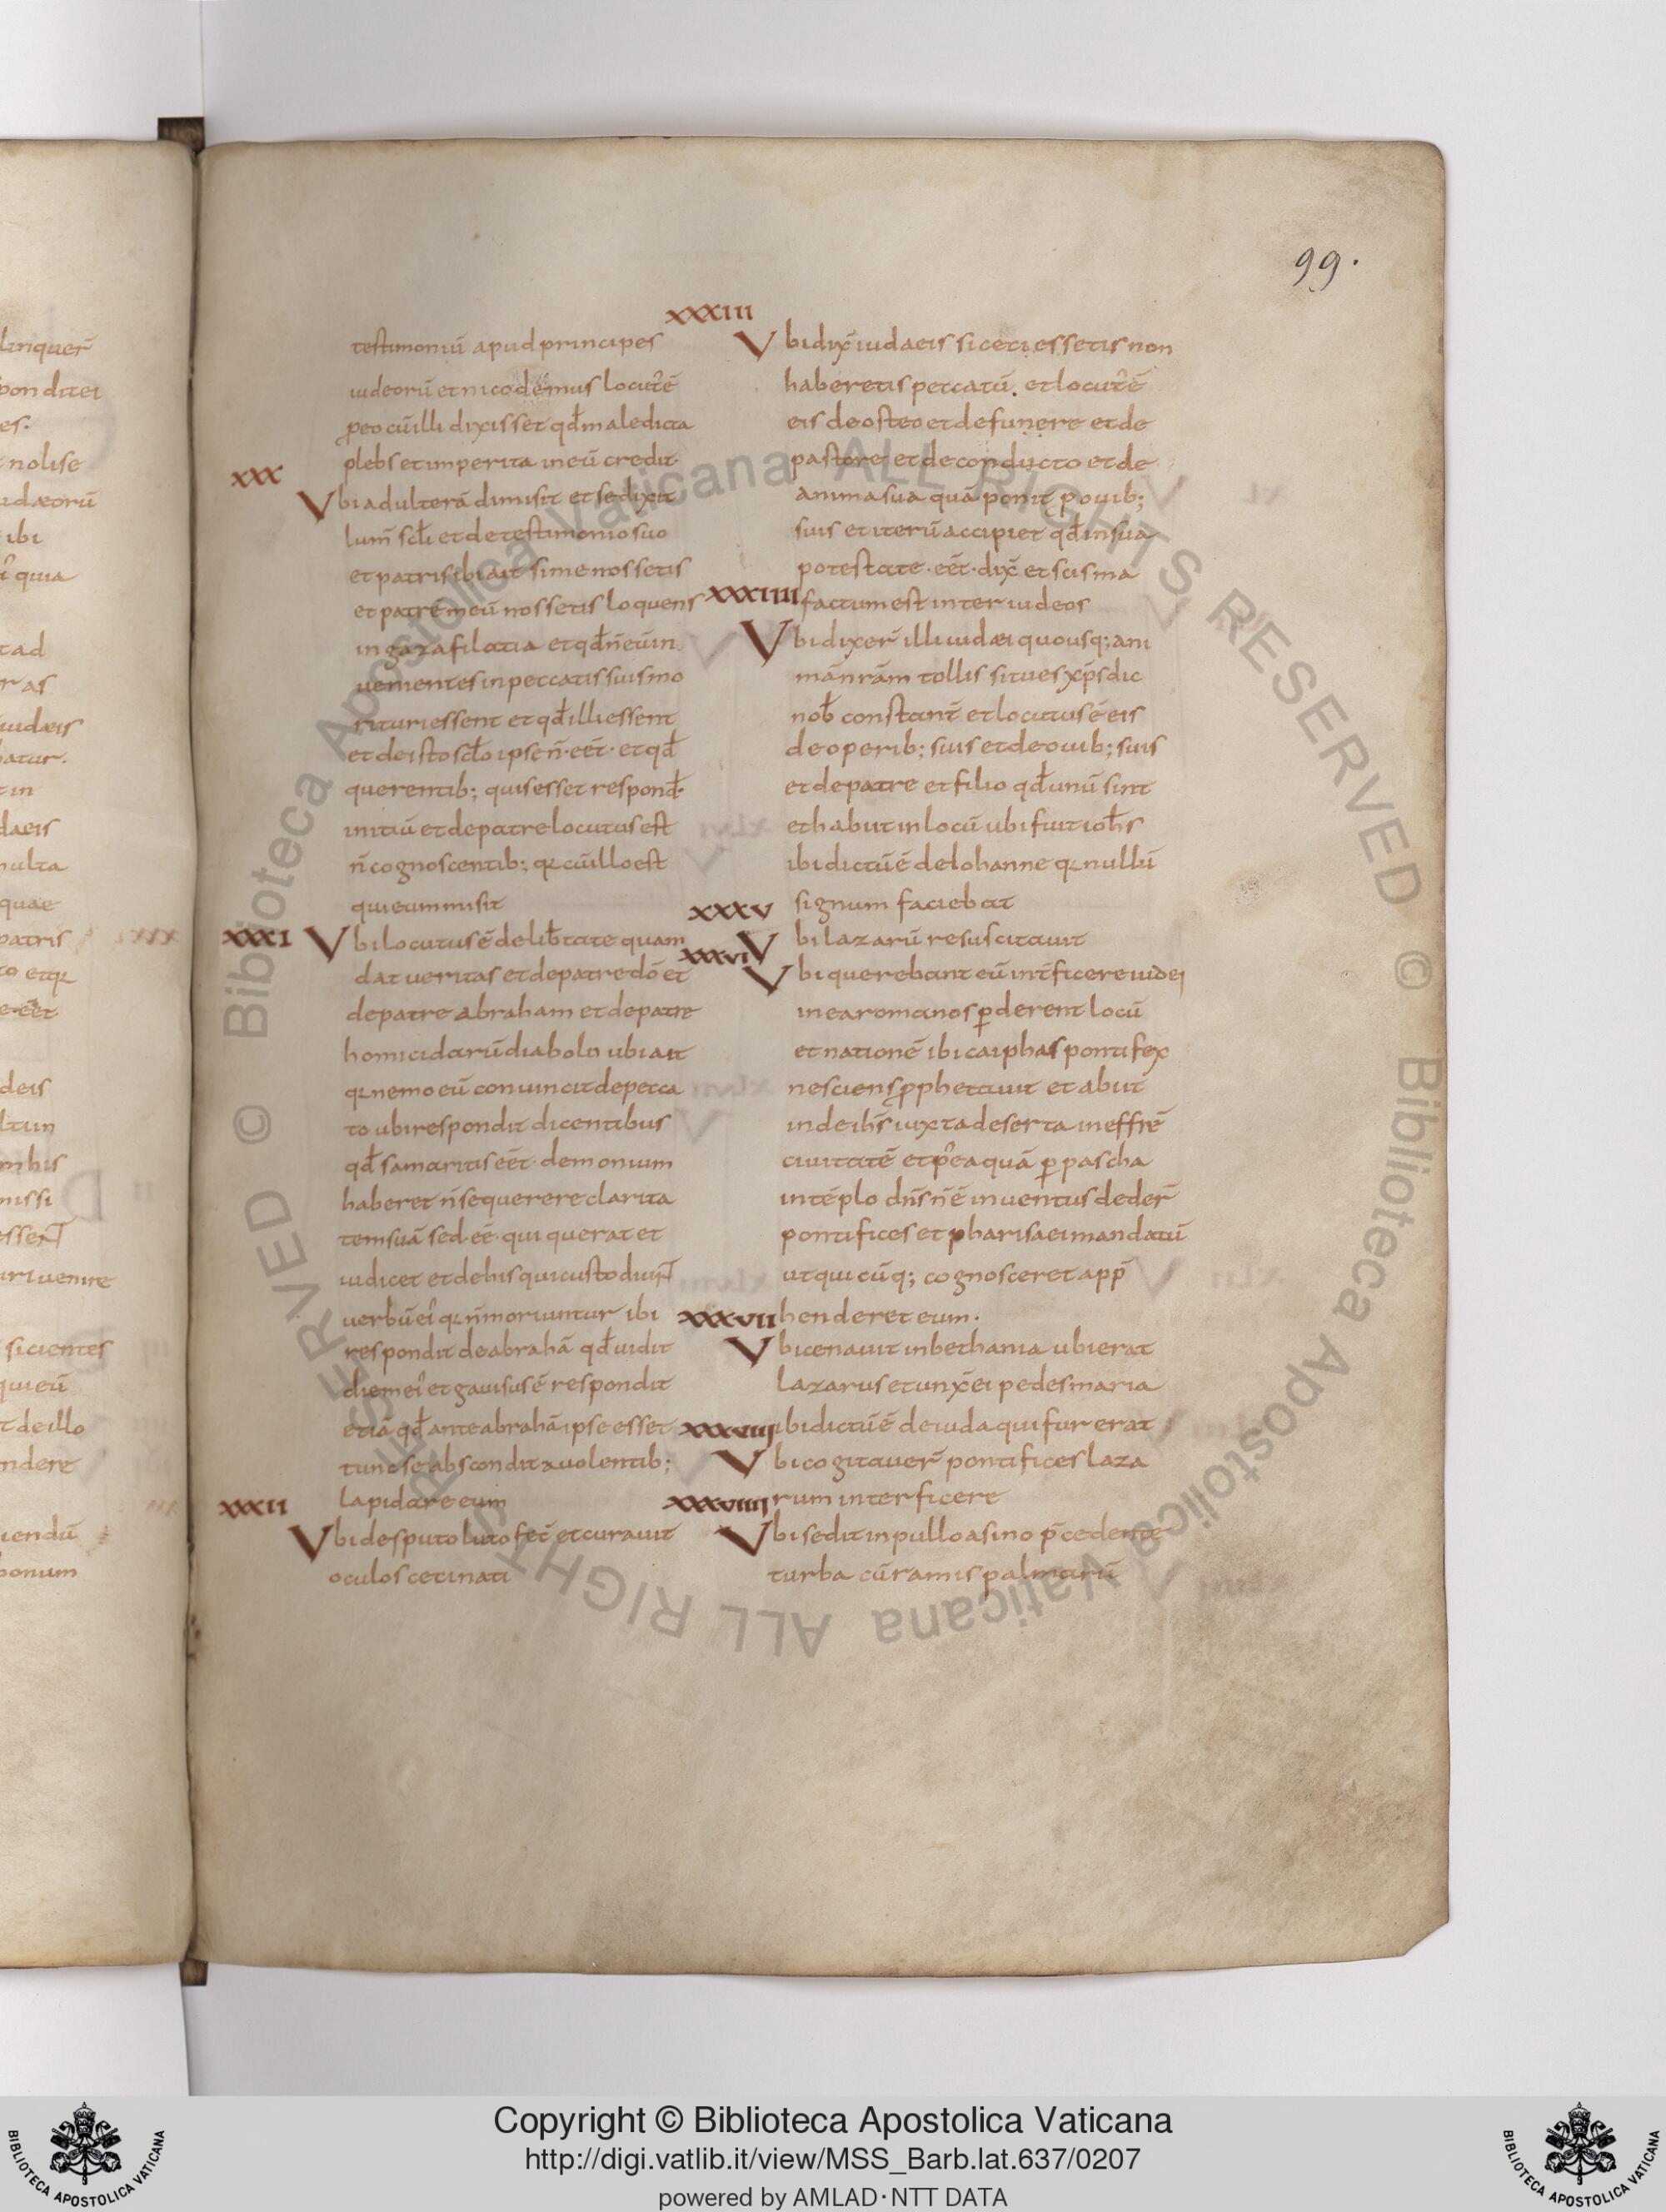 99.
testimoniū apud principes
iudeorū et nicodemus locut᷒ē
ꝓeo cū illi dixisset qd̄ maledicta
plebs et imperita in eū credit·
xxx
Vbi adulterā dimisit et se dixit
lum̄ scl̄i et de testimonio suo
et patris sibi ait si me nossetis
et patrē meū nossetis loquens
in gazafilatia et qd̄ n̄ eū in
uenientes in peccatis suis mo
rituri essent et qd̄ illi essent
et de isto scl̄o ipse n̄·eēt· et qd̄
querentib; quis esset respond̄·
initiū et de patre locutus est
n̄ cognoscentib; qꝛ cū illo est
qui eum misit
xxxi Vbi locutus ē de lib̄tate quam
dat ueritas et de patre dō et
de patre abraham et de patre
homicidarū diabolū ubi ait
qꝛ nemo eū conuincit de pecca
to ubi respondit dicentibus
qd̄ samaritis eēt· demonium
haberet n̄ se querere clarita
tem suā sed·eē· qui querat et
iudicet et de his qui custodiunt
uerbū ei᷒ qꝛ n̄ moriuntur ibi
respondit de abrahā qd̄ uidit
diem ei᷒ et gauisus ē respondit
etiā qd̄ ante abrahā ipse esset
tunc se abscondit a uolentib;
xxxii lapidare eum
Vbi de sputo luto fec̄ et curauit
oculos ceti nati
xxxiii
Vbi dix̄ iudaeis si ceci essetis non
haberetis peccatū. et locut᷒ ē
eis de osteo et de funere et de
pastore et de conducto et de
anima sua quā ponit ꝓ ouib;
suis et iterū accipiet qd̄ in sua
potestate·eēt·dix̄ et scisma
xxxiiii factum est inter iudeos
Vbi dixer̄ illi iudæi quousq; ani
mā nrām tollis si tu es xp̄s dic
nob̄ constant̄ et locutus ē eis
de operib; suis et de ouib; suis
et de patre et filio qd̄ unū sint
et habiit in locū ubi fuit ioh̄s
ibi dictū ē de Iohanne qꝛ nullū
signum faciebat
xxxv
Vbi lazarū resuscitauit
xxxvi
Vbi querebant eū int̄ficere iudei
in ea romanos ꝑderent locū
et nationē ibi caiphas pontifex
nesciens ꝓphetauit et abiit
inde ih̄s iuxta deserta in effrē
ciuitatē et p᷒ea quā ꝑ pascha
in tēplo dn̄s n̄ ē inuentus deder̄
pontifices et pharisaei mandatū
ut qui cūq; cognosceret app̄
xxxvii henderet eum·
Vbi cenauit in bethania ubi erat
lazarus et unx̄ ei pedes maria
xxxviii ibi dictū ē de iuda qui fur erat
Vbi cogitauer̄ pontifices laza
xxxviiii rum interficere
Vbi sedit in pullo asino p̄cedente
turba cū ramis palmarū
Copyright © Biblioteca Apostolica Vaticana
http://digi.vatlib.it/view/MSS_Barb.lat.637/0207
powered by AMLAD·NTT DATA